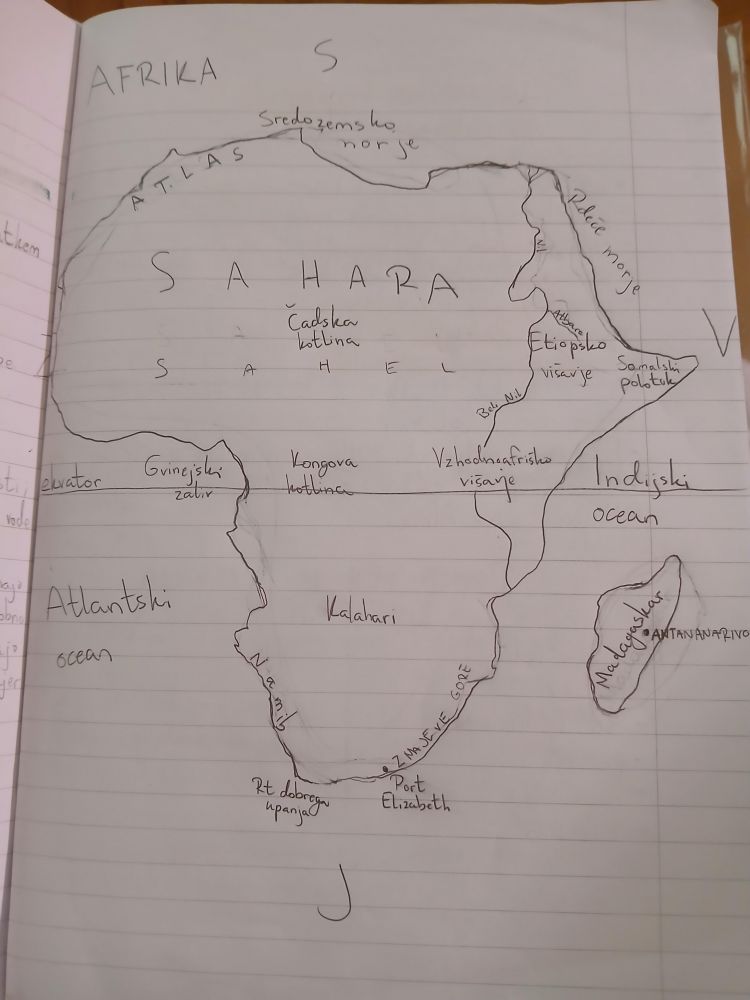 S
AFRIKA
Sredozemsko
norje
ATLAS
Rdeče morje
SAHARA
Nil
Čadska
kotlina
Atbara
V
Etiopsko
višavje
Somalski
polotok
SAHEL
Beli Nil
ekvator
Gvinejski
zaliv
Kongova
kotlina
Vzhodnoafriško
višavje
Indijski
ocean
Atlantski
ocean
Kalahari
Madagaskar
ANTANANARIVO
Namib
ZMAJEVE GORE
Rt dobrega
upanja
Port
Elizabeth
J